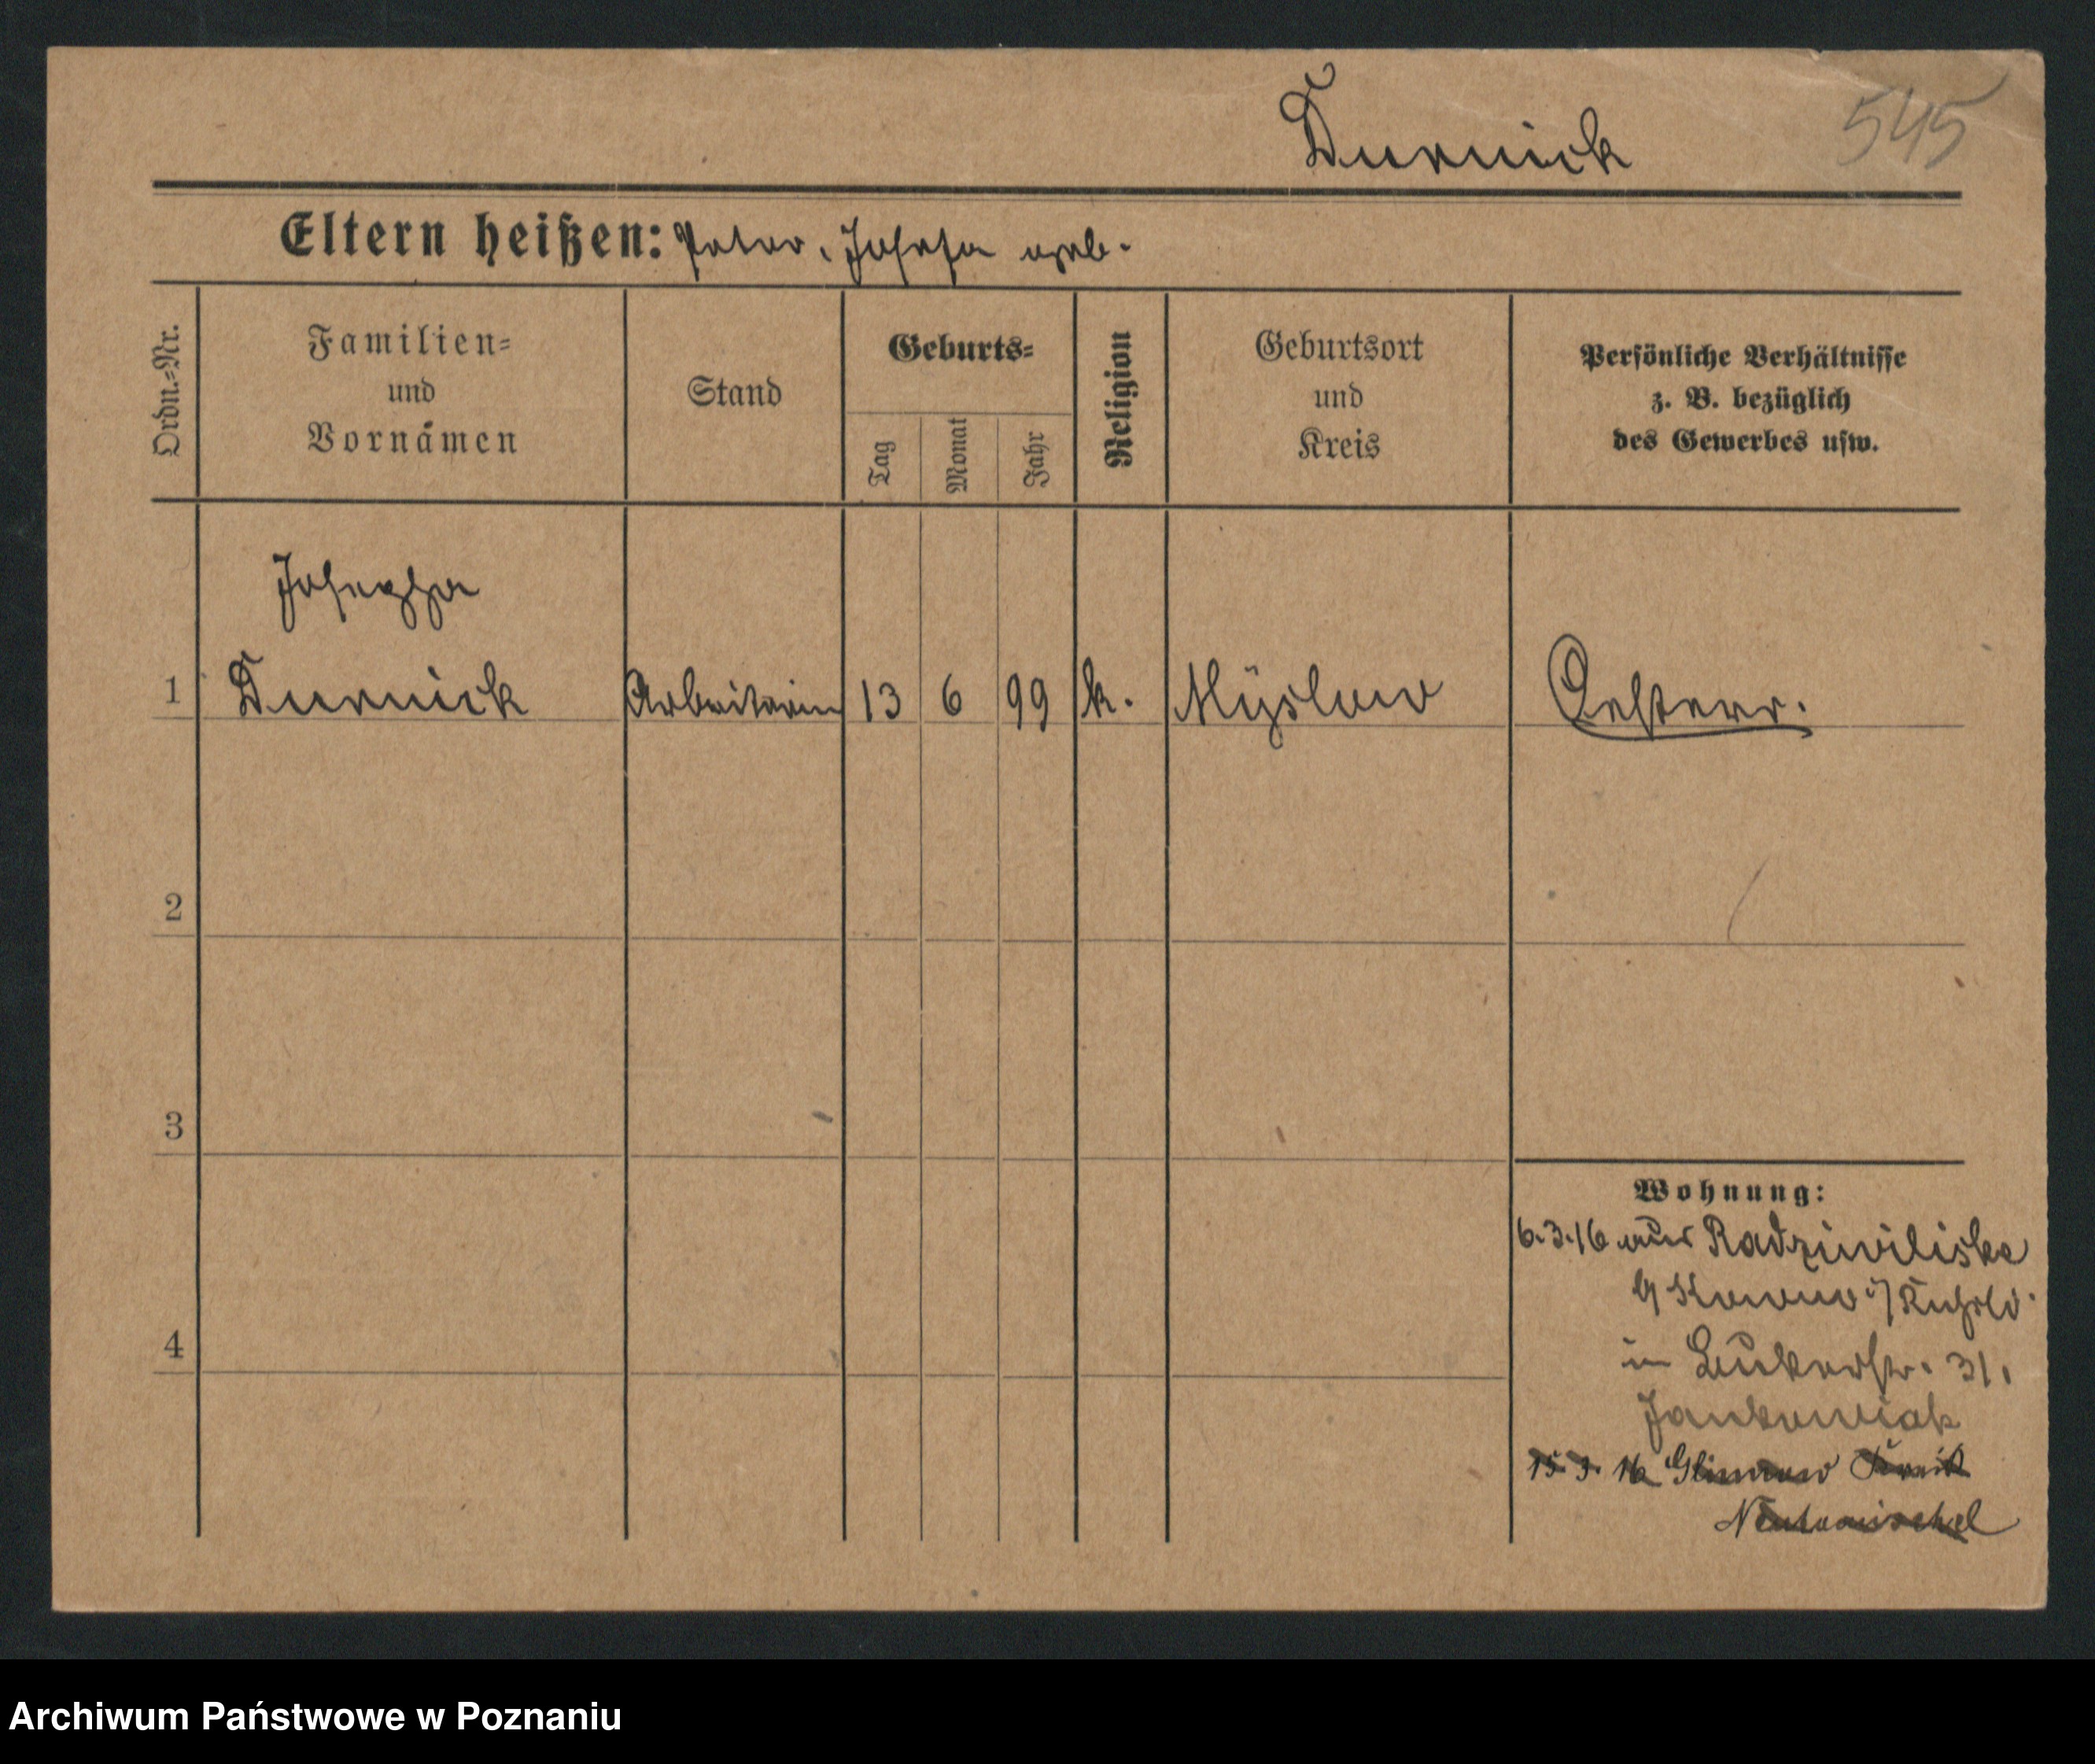 Durnick 545
Eltern heißen: Peter, Josefa geb.
Ordn.=Nr.
Familien=
und
Vornamen
Stand
Geburts=
Tag
Monat
Jahr
Religion
Geburtsort
und
Kreis
Persönliche Verhältnisse
z. B. bezüglich
des Gewerbes usw.
Josepha
1 Durnick Arbeiterin 13 6 99 k. Myslow Oesterr.
2
3
4
Wohnung:
6.3.16 aus Radziwiliske
Kowno
in 31.
Jankowiak
15. 3. 16 Kreis
Archiwum Państwowe w Poznaniu